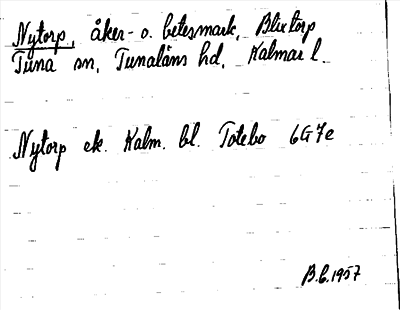 Nytorp, åker- o. betesmark, Blixtorp
Tuna sn, Tunaläns hd, Kalmar l.
Nytorp ek. Kalm. bl. Totebo 6G7e
B.C.1957